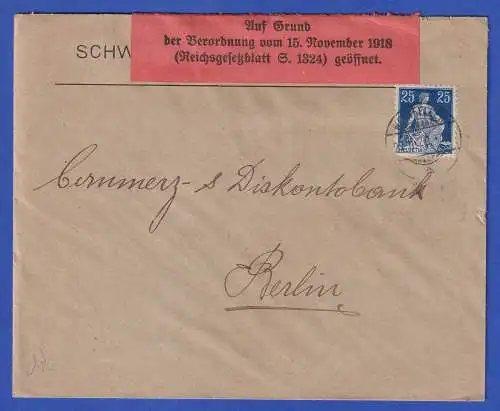 Auf Grund
der Verordnung vom 15. November 1918
(Reichsgesetzblatt S. 1324) geöffnet.
SCHW
25 25
Commerz- & Diskontobank
Berlin